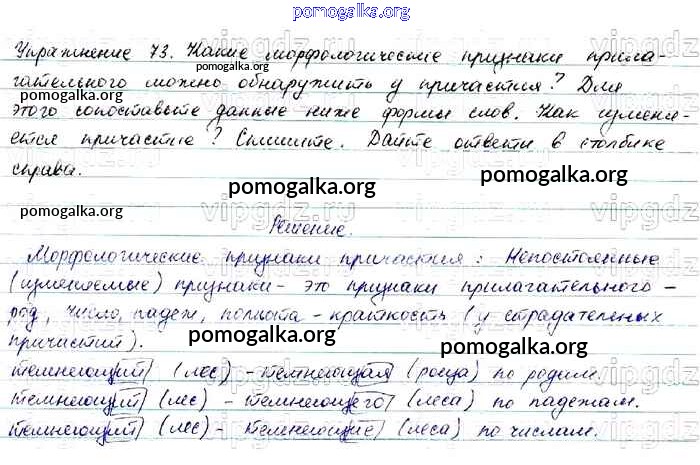 pomogalka.org
Упражнение 73. Какие морфологические признаки прила-
гательного можно обнаружить у причастия? Для
pomogalka.org
pomogalka.org
этого сопоставьте данные ниже формы слов. Как изменя-
ется причастие? Спишите. Дайте ответы в столбике
справа.
pomogalka.org
pomogalka.org
pomogalka.org
vipgdz.ru
Решение.
Морфологические признаки причастия: Непостоянные
(изменяемые) признаки - это признаки прилагательного -
род, число, падеж, полнота - краткость (у страдательных
причастий).
pomogalka.org
pomogalka.org
темнеющий (лес) - темнеющая (роща) по родам.
темнеющий (лес) - темнеющего (леса) по падежам.
темнеющий (лес) - темнеющие (леса) по числам.